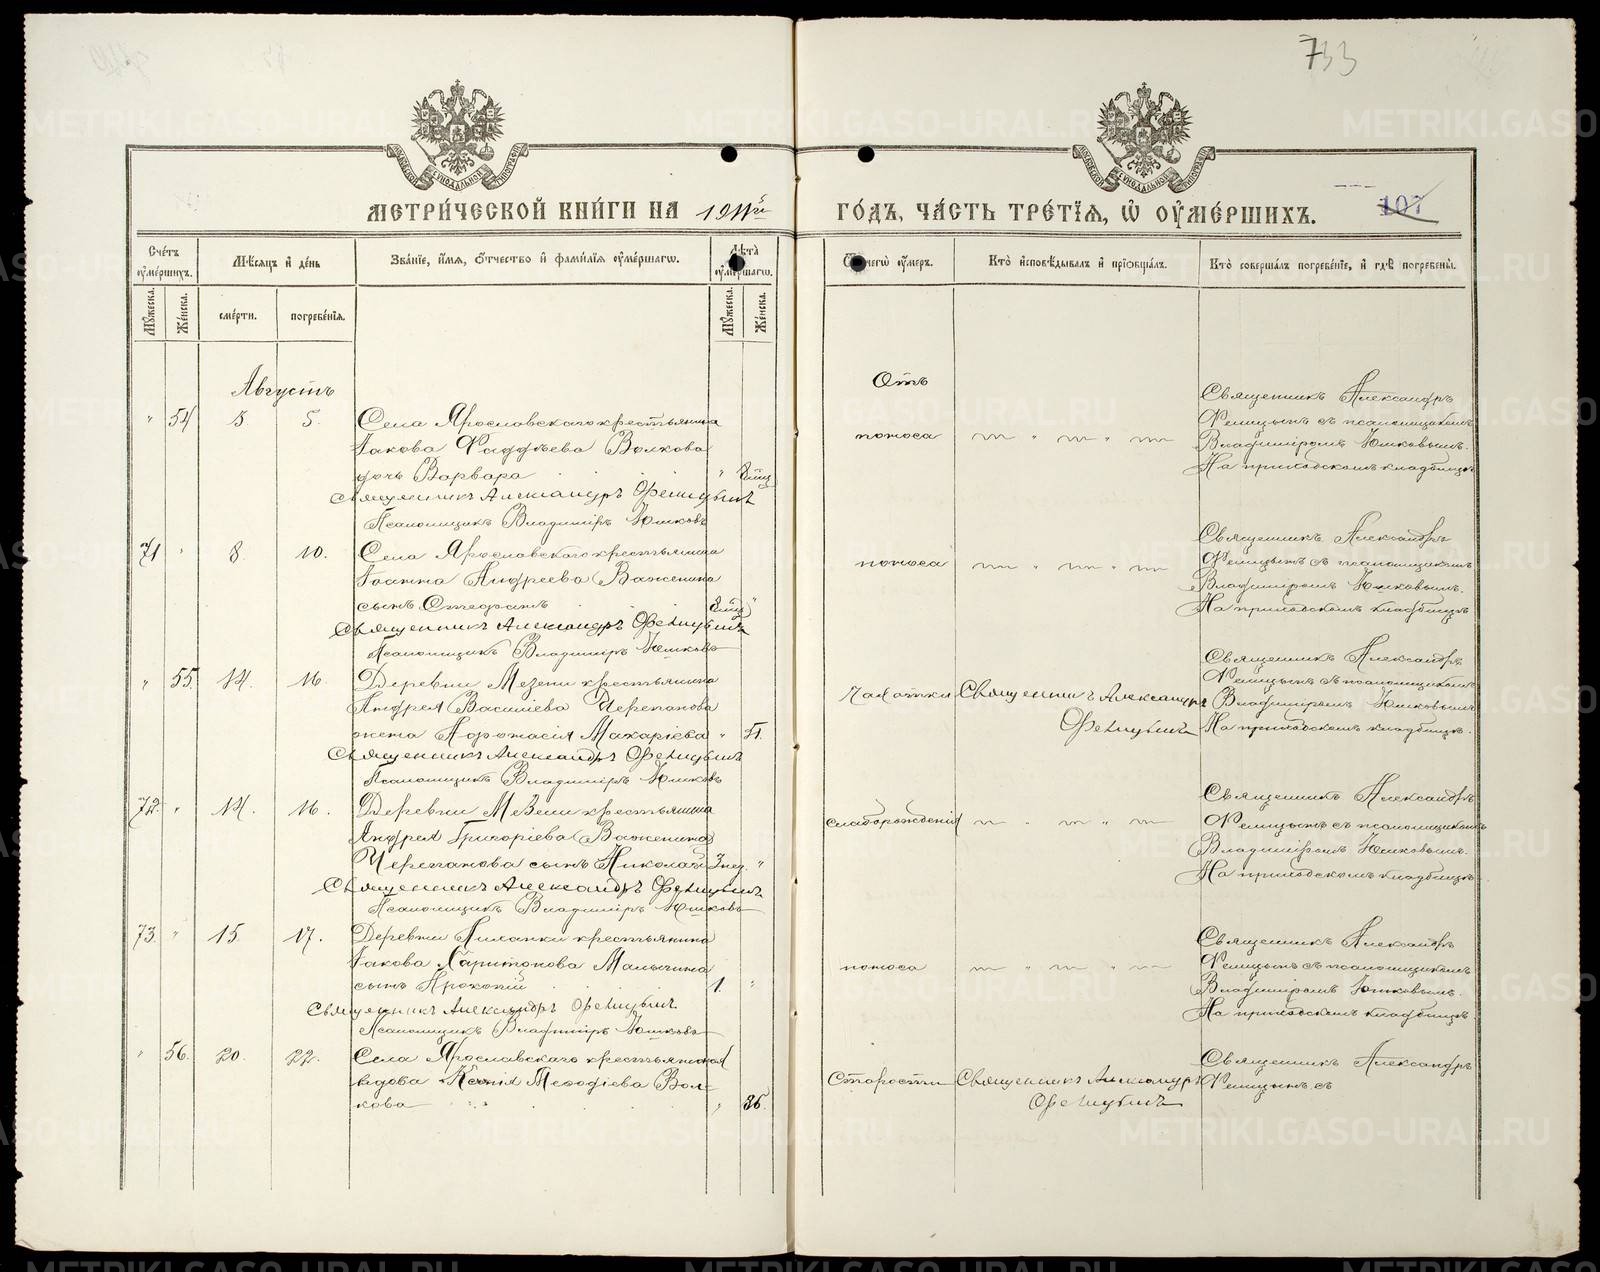 733
МЕТРИ́ЧЕСКОЙ КНИ́ГИ НА 1911й
ГО́ДЪ, ЧА́СТЬ ТРЕ́ТЇЯ, Ѡ ОУ҆МЕ́РШИХЪ.
107
Сче́тъ оу҆ме́ршихъ.
Мѣ́сяцъ и҆ де́нь
Зва́нїе, и҆́мя, ѻ҆́тчество и҆ фами́лїя оу҆ме́ршагѡ.
Лѣ́та оу҆ме́ршагѡ.
Ѿ чегѡ̀ оу҆́меръ.
Кто̀ и҆сповѣ́дывалъ и҆ прїѡбща́лъ.
Кто̀ соверша́лъ погребе́нїе, и҆ гдѣ̀ погребены̀.
Му́жеска.
Же́нска.
сме́рти.
погребе́нїя.
Му́жеска.
Же́нска.
Августъ
Отъ
" 54 5 5. Села Ярославскаго крестьянина
Іакова Фаддѣева Волкова
дочь Варвара "
Священникъ Александръ Феницынъ
Псаломщикъ Владиміръ Юшковъ
поноса
Священникъ Александръ
Феницынъ съ псаломщикомъ
Владиміромъ Юшковымъ.
На приходскомъ кладбищѣ
71 " 8. 10. Села Ярославскаго крестьянина
Іоанна Андреева Важенина
сынъ Стефанъ "
Священникъ Александръ Феницынъ
Псаломщикъ Владиміръ Юшковъ
поноса
Священникъ Александръ
Феницынъ съ псаломщикомъ
Владиміромъ Юшковымъ.
На приходскомъ кладбищѣ
" 55. 14. 16. Деревни Мезени крестьянина
Андрея Василіева Черепанова
жена Афанасія Макаріева " 51.
Священникъ Александръ Феницынъ
Псаломщикъ Владиміръ Юшковъ
Чахотки Священникъ Александръ
Феницынъ
Священникъ Александръ
Феницынъ съ псаломщикомъ
Владиміромъ Юшковымъ
На приходскомъ кладбищѣ.
72. " 14. 16. Деревни Мезени крестьянина
Андрея Григоріева (Важенина)
Черепанова сынъ Николай 3 нед. "
Священникъ Александръ Феницынъ
Псаломщикъ Владиміръ Юшковъ
слаборожденія
Священникъ Александръ
Феницынъ съ псаломщикомъ
Владиміромъ Юшковымъ.
На приходскомъ кладбищѣ
73. " 15. 17. Деревни Пиланки крестьянина
Іакова Харитонова Малыгина
сынъ Прокопій 1. "
Священникъ Александръ Феницынъ
Псаломщикъ Владиміръ Юшковъ
поноса
Священникъ Александръ
Феницынъ съ псаломщикомъ
Владиміромъ Юшковымъ.
На приходскомъ кладбищѣ.
" 56. 20. 22. Села Ярославскаго крестьянская
вдова Ксенія Меѳодіева Вол-
кова " 86.
Старости Священникъ Александръ
Феницынъ
Священникъ Александръ
Феницынъ съ
METRIKI.GASO-URAL.RU